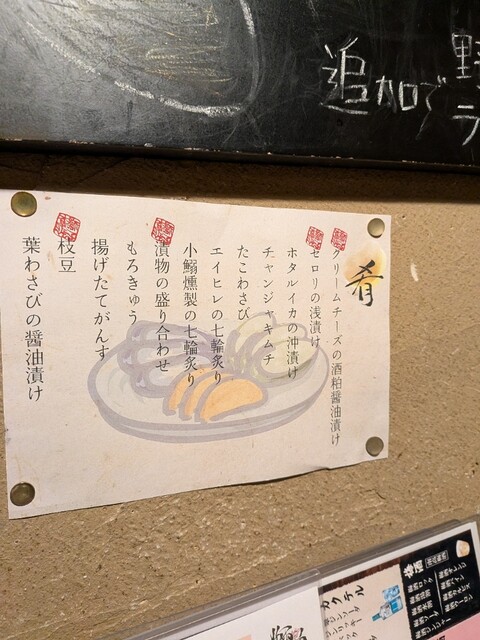 追加で
野
ラ
肴
クリームチーズの酒粕醤油漬け
セロリの浅漬け
ホタルイカの沖漬け
チャンジャキムチ
たこわさび
エイヒレの七輪炙り
小鰯燻製の七輪炙り
漬物の盛り合わせ
もろきゅう
揚げたてがんす
枝豆
葉わさびの醤油漬け
カクテル
梅酒